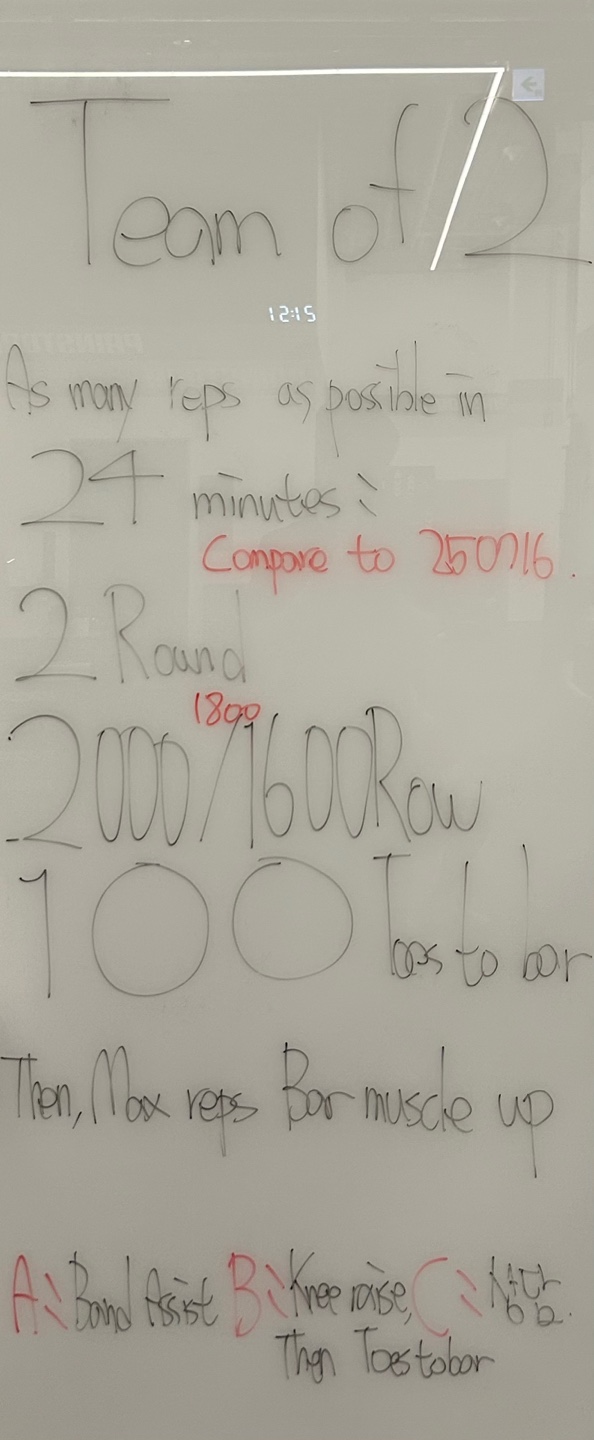 Team of 2
12:15
As many reps as possible in
24 minutes:
Compare to 250716.
2 Round
1800
2000/1600 Row
100 Toes to bar
Then, Max reps Bar muscle up
A: Band Assist B: Knee raise, C: 상담.
Then Toes to bar